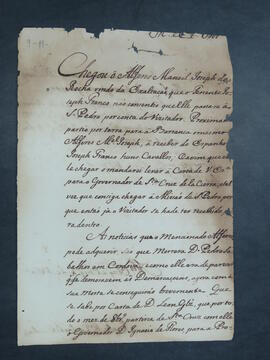 Chegou ó Alferes Manoel Joseph da
Rocha vindo da Exaltação, que o Tenente Jo-
seph Franco nos convento que elle passase a
S. Pedro por conta do Vizitador. Proximam.
partio por terra para a Barranca o mesmo
Alferes M.el Joseph, á receber do Espanhol
Joseph Franco huns Cavallos, E como que
le chegar o mandarei levar a Carta de V. Ex.a
para o Governador de S.ta Cruz de la Cierra, e tal
vez, que consiga chegar á Missão de S. Pedro, por
que entaó ja o Vizitador se hade ter recolhido
a dentro.
As noticias que o Mencionado Alferes
pede adquerir são que Morreu D. Pedro
balhos em Cordova, como elle era de parecer
q. se demorasem as Demarcaçoens, agora com a
sua Morte se conseguirão brevemente. Que
se sabe por Carta de D. Leon, Glz, que por to-
do o mez de partira de S.ta Cruz com elle
o Governador D. Ignacio de Flores para a Pro-